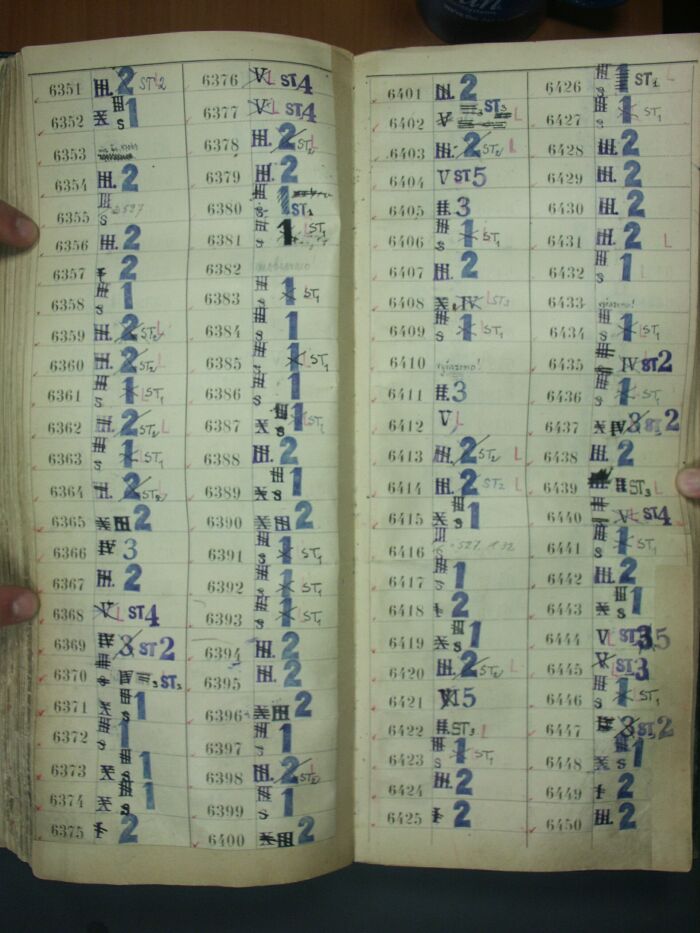 6351 III. 2 ST2
6352 X III S 1
6353
6354 III. 2
6355 III S
6356 III. 2
6357 I 2
6358 III S 1
6359 III. 2 ST2 L
6360 III. 2 ST2 L
6361 III S 1 L ST1
6362 III. 2 ST2 L
6363 III S 1 L ST1
6364 III. 2 ST2
6365 X III 2
6366 IV 3
6367 III. 2
6368 V L ST4
6369 IV 3 ST2
6370 IV ST3
6371 X III S 1
6372 III S 1
6373 X III S 1
6374 X III S 1
6375 I 2
6376 V L ST4
6377 V L ST4
6378 III. 2 ST2 L
6379 III. 2
6380 III S 1 ST1
6381 III S 1
6382
6383 III S 1 ST1
6384 III S 1
6385 III S 1 L ST1
6386 III S 1
6387 X III S 1 L ST1
6388 III. 2
6389 X III S 1
6390 X III 2
6391 III S 1 ST1
6392 III S 1 ST1
6393 III S 1 ST1
6394 III. 2
6395 III. 2
6396 X III 2
6397 III S 1
6398 III. 2 L ST2
6399 III S 1
6400 X III 2
6401 III. 2
6402 V ST3 L
6403 III. 2 ST2 L
6404 V ST5
6405 II. 3
6406 III S 1 L ST1
6407 III. 2
6408 X IV L ST3
6409 III S 1 L ST1
6410
6411 II. 3
6412 V L
6413 III. 2 ST2 L
6414 III. 2 ST2 L
6415 X III S 1
6416 III S
6417 III S 1
6418 I 2
6419 X III S 1
6420 III. 2 ST2 L
6421 15
6422 II. ST3 L
6423 III S 1 L ST1
6424 III. 2
6425 III. 2
6426 III S 1 ST1 L
6427 III S 1 ST1
6428 III. 2
6429 III. 2
6430 III. 2
6431 III. 2 L
6432 III S 1 L
6433
6434 III S 1 L ST1
6435 IV ST2
6436 III S 1 ST1
6437 X IV 3 ST2
6438 III. 2
6439 II ST3 L
6440 V L ST4
6441 III S 1 ST1
6442 III. 2
6443 X III S 1
6444 V L ST3 5
6445 V L ST3
6446 III S 1 L ST1
6447 3 ST 2
6448 X III S 1
6449 I 2
6450 III. 2